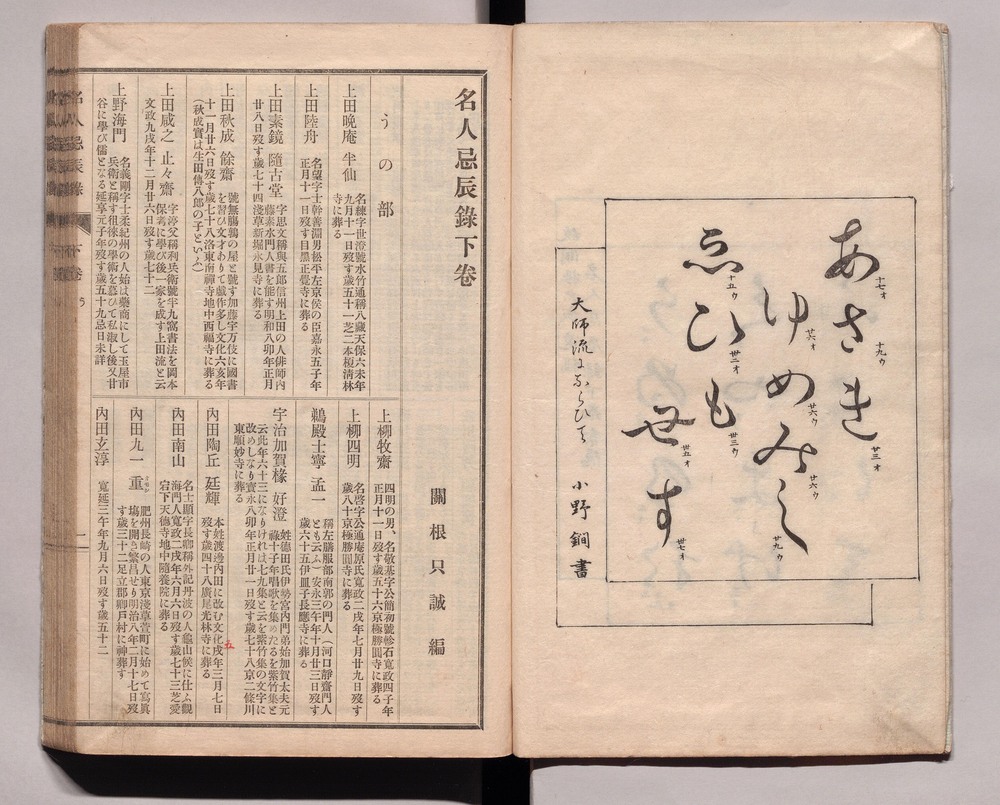 あさき
十七オ
十九ウ
廿三オ
ゆめみし
廿六オ
廿六ウ
廿六ウ
廿九ウ
ゑひも
十五ウ
卅二オ
卅三ウ
せす
卅五オ
卅七オ
大師流にならひて 小野錮書
名人忌辰錄下卷
關根只誠編
うの部
上田晩庵 半仙 名練字世澄號水竹通稱八藏天保六未年
九月十一日歿す歲五十一芝二本榎淸林
寺に葬る
上田陸舟 名望字士幹善淵男松平左京侯の臣嘉永五子年
正月十一日歿す目黑正覺寺に葬る
上田素鏡 隨古堂 字思文稱與五郎信州上田の人俳師內
藤素水門人書を能す明和八卯年正月
廿八日歿す歲七十四淺草新堀永見寺に葬る
上田秋成 餘齋 號無腸鶉の屋と號す加藤宇万伎に國書
を習ひ文才ありて戲作多し文化六亥年
十一月廿六日歿す歲七十八洛東南禪寺地中西福寺に葬る
(秋成實は生田傳八郎の子といふ)
上田咸之 止々齋 字淳父稱利兵衛號半九窩書法を岡本
保考に學び後一家を成す上田流と云
文政九戌年十二月廿六日歿す歲七十二
上野海門 名義剛字士柔紀州の人始は藥商にして玉屋市
兵衛と稱す徂徠の學術を慕ひて私淑し後又甘
谷に學び儒となる延享元子年歿す歲五十九忌日未詳
上柳牧齋 四明の男、名敬基字公簡初號軫石寬政四子年
正月十一日歿す歲五十六京極勝圓寺に葬る
上柳四明 名啓字公通庵原氏寬政二戌年七月廿九日歿す
歲八十京極勝圓寺に葬る
鵜殿士寧 孟一 稱左膳服部南郭の門人(河口靜齋門人
とも云ふ)安永三午年十月廿三日歿す
歲六十五伊皿子長應寺に葬る
宇治加賀掾 好澄 姓德田氏伊勢宮內門弟始加賀太夫元
祿十子年唱歌を集めたるを紫竹集と
云此年六十三になりけれは七九集と云を紫竹集の文字に
改めしなり寶永八卯年正月廿一日歿す歲七十八京二條川
東順妙寺に葬る
內田陶丘 廷輝 本姓渡邊內田に改む文化戌年三月七日
歿す歲四十八廣尾光林寺に葬る
五
內田南山 名士顯字長卿稱外記丹波の人龜山候に仕ふ觀
海門人寬政二戌年六月六日歿す歲七十三芝愛
宕下天德寺地中隨養院に葬る
內田九一 重 肥州長崎の人東京淺草萱町に始めて寫眞
塲を開き繁昌せり明治八年二月十七日歿
す歲三十二足立郡鄕戸村に神葬す
內田玄淳 寬延三午年九月六日歿す歲五十二
名人忌辰錄 下卷 う
一